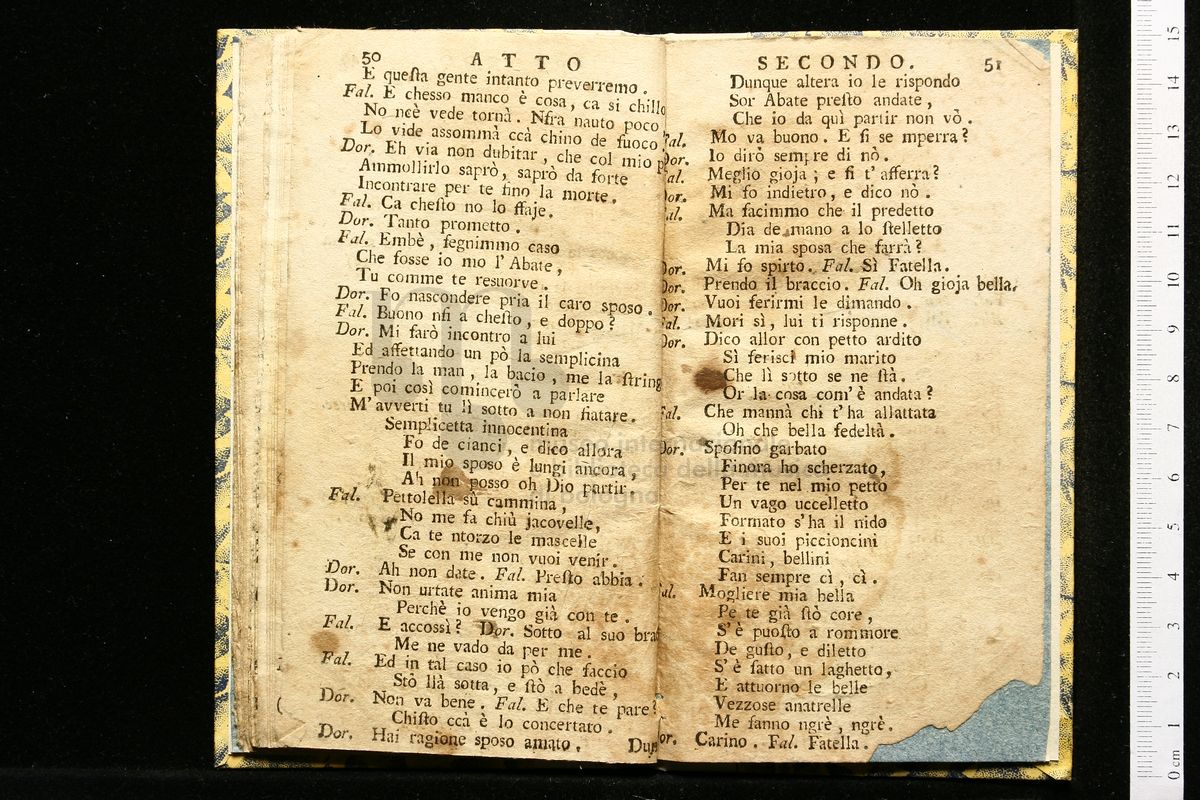 50 ATTO
E questa gente intanto preverremo.
Fal. E chesso manco è cosa, ca si chillo
No ncè vede tornà. Nfra nauto poco
Lo vide assommà ccà chino de fuoco
Dor. Eh via non dubitar, che col mio
Ammollirlo saprò, saprò da forte
Incontrare per te fino la morte.
Fal. Ca chesto no lo ffaje.
Dor. Tanto prometto.
Fal. Embè, fegnimmo caso
Che fosse io mo l'Abate,
Tu comme te resuorve.
Dor. Fo nascondere pria il caro sposo.
Fal. Buono nfi a chesto, e doppo?
Dor. Mi farò incontro a lui
Ed affettando un pò la semplicina
Prendo la man, la bacio, me la string
E poi così comincerò a parlare
M'avverti tu lì sotto a non fiatare.
Semplicetta innocentina
Fo de cianci, e dico allora
Il mio sposo è lungi ancora,
Ah non posso oh Dio partir
Fal. Pettolella sù cammina,
No me fa chiù jacovelle,
Ca te ntorzo le mascelle
Se con me non vuoi venir.
Dor. Ah non date. Fal. Presto abbia.
Dor. Non urtate anima mia
Perchè io vengo già con te.
Fal. E accossì? Dor. Sotto al suo bra
Me ne vado da per me.
Fal. Ed in tal caso io pò che faccio
Stò llà sotta, e stò a bedè,
Dor. Non va bene. Fal. E che te pare?
Chisto ccà è lo concertato.
Dor. Hai ragione sposo amato.
Dun
SECONDO. 51
Dunque altera io le rispondo
Sor Abate presto andate,
Che io da quì partir non vò.
Fal. Mo va buono. E si se mperra?
Dor. Io dirò sempre di nò.
Fal. Meglio gioja; e si t'afferra?
Dor. Mi fo indietro, e dico nò.
Fal. Ma facimmo che il predetto
Dia de mano a lo stelletto
La mia sposa che farrà?
Dor. Mi fo spirto. Fal. Sì Fatella.
Dor. Prendo il braccio. Fal. Oh gioja bella,
Dor. Vuoi ferirmi le dimando.
Fal. Mori sì, lui ti risponne.
Dor. Dico allor con petto ardito
Sì ferisci mio marito
Che lì sotto se ne stà.
Or la cosa com'è andata?
Fal. Che mannà chi t'ha allattata
Oh che bella fedeltà.
Dor. Sposino garbato
Finora ho scherzato,
Per te nel mio petto
Un vago uccelletto
Formato s'ha il nido
E i suoi piccioncini
Carini, bellini
Fan sempre cì, cì.
Fal. Mogliere mia bella
Pe te già stò core,
S'è puosto a rommore
De gusto, e diletto
S'è fatto un laghetto,
E attuorno le belle
Vezzose anatrelle
Me fanno ngrè, ngrè.
Dor. Carino. Fal. Fatella.
museo internazionale
biblioteca della musica
di bologna
0 cm 1 2 3 4 5 6 7 8 9 10 11 12 13 14 15